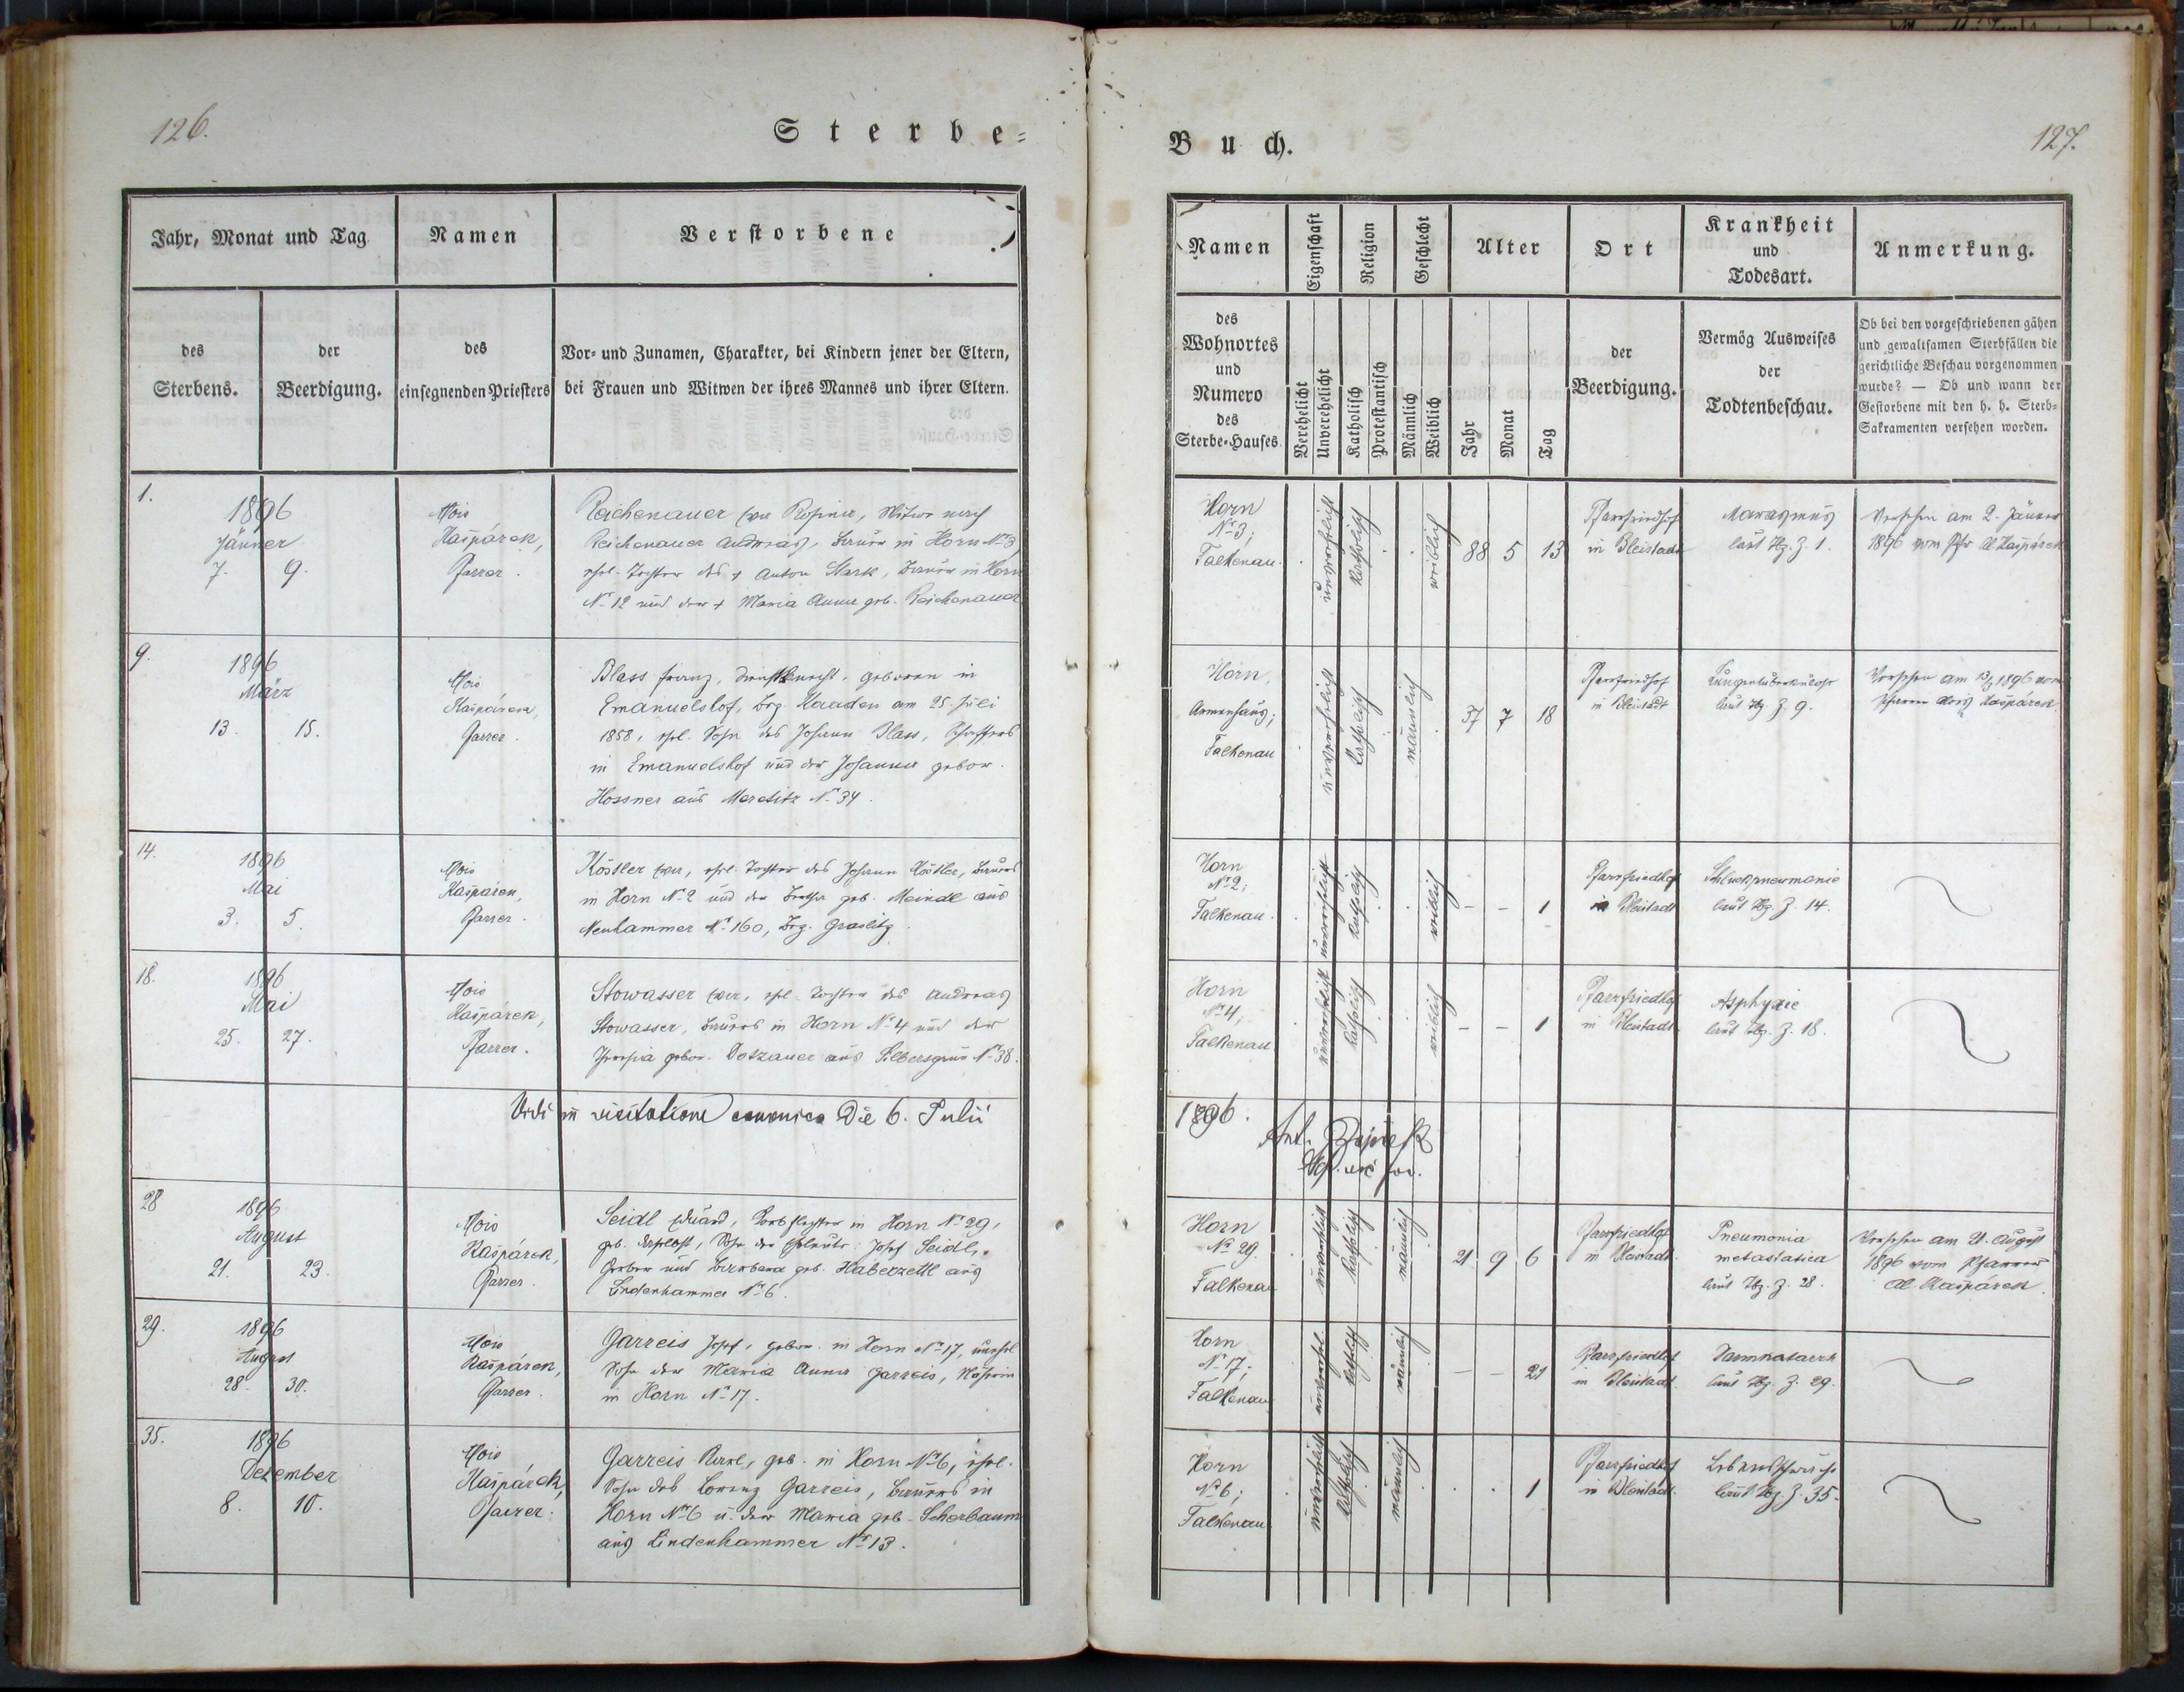 126.
Sterbe=
Jahr, Monat und Tag
Namen
Verstorbene
des
Sterbens.
der
Beerdigung.
des
einsegnenden Priesters
Vor= und Zunamen, Charakter, bei Kindern jener der Eltern,
bei Frauen und Witwen der ihres Mannes und ihrer Eltern.
1.
1896
Jänner
7. 9.
Alois
Kašpárek,
Pfarrer.
Reichenauer Rosina, Witwe nach
Reichenauer Andreas, Bauer in Horn N. 3,
ehel. Tochter des + Anton Stark, Bauer in Horn
N. 12 und der + Maria Anna geb. Reichenauer
9.
1896
März
13. 15.
Alois
Kašpárek,
Pfarrer.
Blass Franz, Dienstknecht, geboren in
Emanuelshof, Bzg. Kaaden am 25. Juli
1858, ehel. Sohn des Johann Blass, Schaffers
in Emanuelshof und der Johanna gebor.
Hossner aus Meretitz N. 34.
14.
1896
Mai
3. 5.
Alois
Kašpárek,
Pfarrer.
Kössler, ehel. Tochter des Johann Kössler, Bauers
in Horn N. 2 und der Bertha geb. Meindl aus
Neuhammer N. 160, Bzg. Graslitz.
18.
1896
Mai
25. 27.
Alois
Kašpárek,
Pfarrer.
Stowasser, ehel. Tochter des Andreas
Stowasser, Bauers in Horn N. 4 und der
gebor. Dotzauer aus Silbersgrün N. 38.
Vidi in visitatione canonica Die 6. Julii
28
1896
August
21. 23.
Alois
Kašpárek,
Pfarrer.
Seidl Eduard, Korbflechter in Horn N. 29,
geb. daselbst, Sohn der Eheleute Josef Seidl,
und Barbara geb. Haberzettl aus
Lindenhammer N. 6.
29.
1896
August
28. 30.
Alois
Kašpárek,
Pfarrer.
Garreis Josef, gebor. in Horn N. 17, unehel
Sohn der Maria Anna Garreis, Näherin
in Horn N. 17.
35.
1896
Dezember
8. 10.
Alois
Kašpárek,
Pfarrer.
Garreis Karl, geb. in Horn N. 6, ehel.
Sohn des Lorenz Garreis, Bauers in
Horn N. 6 u. der Maria geb. Scherbaum
aus Lindenhammer N. 13.
Buch.
127.
Namen
Eigenschaft
Religion
Geschlecht
Alter
Ort
Krankheit
und
Todesart.
Anmerkung.
des
Wohnortes
und
Numero
des
Sterbe=Hauses.
Verehelicht
Unverehelicht
Katholisch
Protestantisch
Männlich
Weiblich
Jahr
Monat
Tag
der
Beerdigung.
Vermög Ausweises
der
Todtenbeschau.
Ob bei den vorgeschriebenen gähen
und gewaltsamen Sterbfällen die
gerichtliche Beschau vorgenommen
wurde? — Ob und wann der
Gestorbene mit den h. h. Sterb=
Sakramenten versehen worden.
Horn
N. 3;
Falkenau.
unverehelicht
katholisch
weiblich
88 5 13
Pfarrfriedhof
in Bleistadt
Marasmus
laut Bz. Z. 1.
Versehen am 2. Jänner
1896 vom Pfr Al Kašpárek
Horn,
Armenhaus;
Falkenau
unverehelicht
katholisch
männlich
37 7 18
Pfarrfriedhof
in Bleistadt
Lungentuberkulose
laut Bz. Z. 9.
Versehen am 13/3 1896 vom
Pfarrer Alois Kašpárek
Horn
N. 2;
Falkenau.
unverehelicht
katholisch
weiblich
- - 1
Pfarrfriedhof
in Bleistadt
Schluckpneumonie
laut Bz. Z. 14.
Horn
N. 4;
Falkenau
unverehelicht
katholisch
weiblich
- - 1
Pfarrfriedhof
in Bleistadt
Asphyxie
laut Bz. Z. 18.
1896.
Ant.
Horn
N. 29.
Falkenau
unverehelicht
katholisch
männlich
21 9 6
Pfarrfriedhof
in Bleistadt.
Pneumonia
metastatica
laut Bz. Z. 28.
Versehen am 21. August
1896 vom Pfarrer
Al. Kašpárek.
Horn
N. 17;
Falkenau
unverehel.
katholisch
männlich
- - 21
Pfarrfriedhof
in Bleistadt.
Darmkatarrh
laut Bz. Z. 29.
Horn
N. 6;
Falkenau
unverehelicht
katholisch
männlich
1
Pfarrfriedhof
in Bleistadt.
Lebensschwäche
laut Bz. Z. 35.